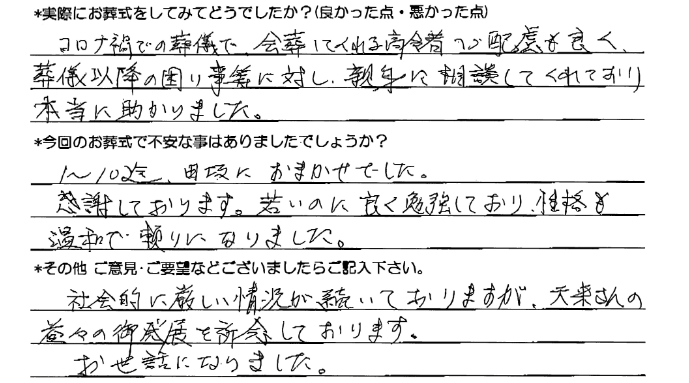 *実際にお葬式をしてみてどうでしたか?(良かった点・悪かった点)
コロナ禍での葬儀で、会葬してくれる高令者への配慮も良く、
葬儀以降の困り事等に対し、親身に相談してくれており
本当に助かりました。
*今回のお葬式で不安な事はありましたでしょうか?
1〜10迄、田坂に おまかせでした。
感謝しております。若いのに良く勉強しており、性格も
温和で頼りになりました。
*その他 ご意見・ご要望などございましたらご記入下さい。
社会的に厳しい情況が続いておりますが、天来さんの
益々の御発展を祈念しております。
お世話になりました。